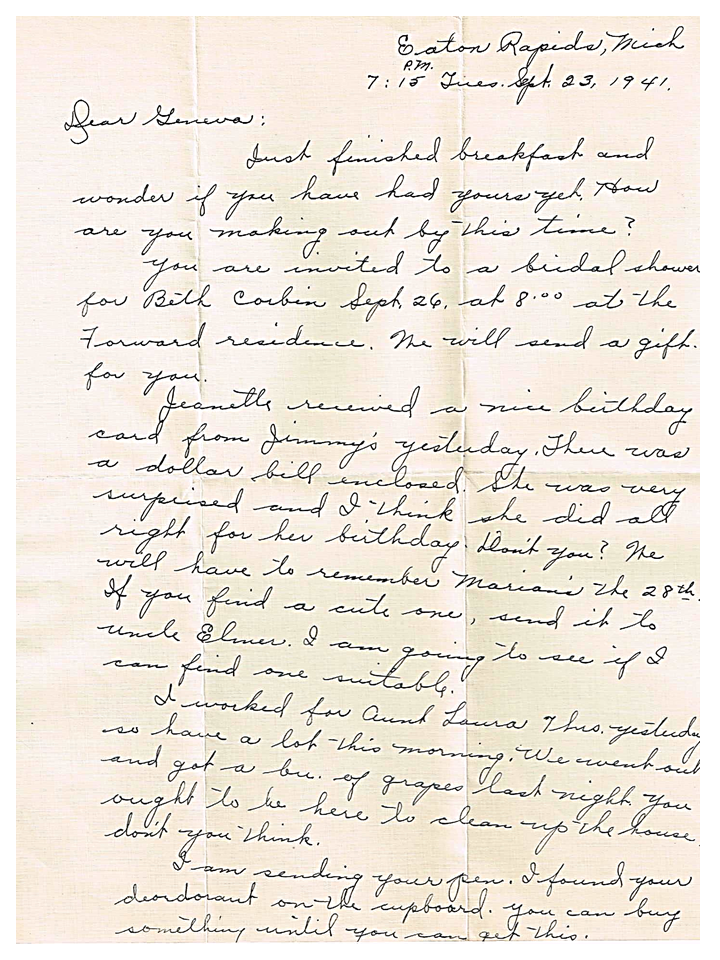 Eaton Rapids, Mich
P.M.
7:15 Tues. Spt. 23, 1941.
Dear Geneva:
Just finished breakfast and
wonder if you have had yours yet. How
are you making out by this time?
You are invited to a bridal shower
for Beth Corbin Sept. 26, at 8:00 at the
Forward residence. We will send a gift.
for you.
Jeanette received a nice birthday
card from Jimmy's yesterday. There was
a dollar bill enclosed. She was very
surprised and I think she did all
right for her birthday. Don't you? We
will have to remember Marian's the 28th.
If you find a cute one, send it to
uncle Elmer. I am going to see if I
can find one suitable.
I worked for Aunt Laura Thos. yesterday
so have a lot this morning. We went out
and got a bu. of grapes last night. You
ought to be here to clean up the house
don't you think.
I am sending your pen. I found your
deordorant on the cupboard. you can buy
something until you can get this.